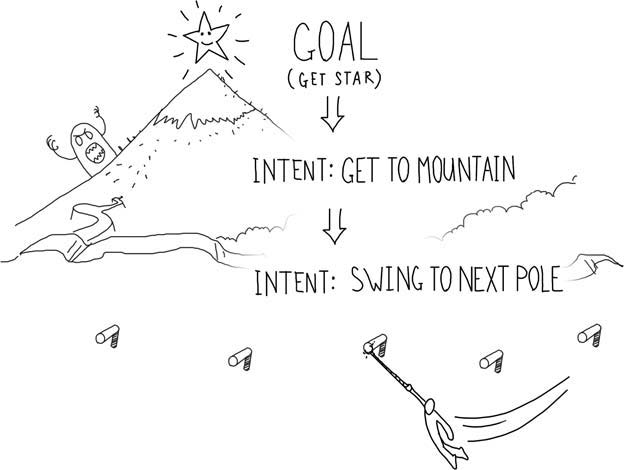 GOAL
(GET STAR)
INTENT: GET TO MOUNTAIN
INTENT: SWING TO NEXT POLE